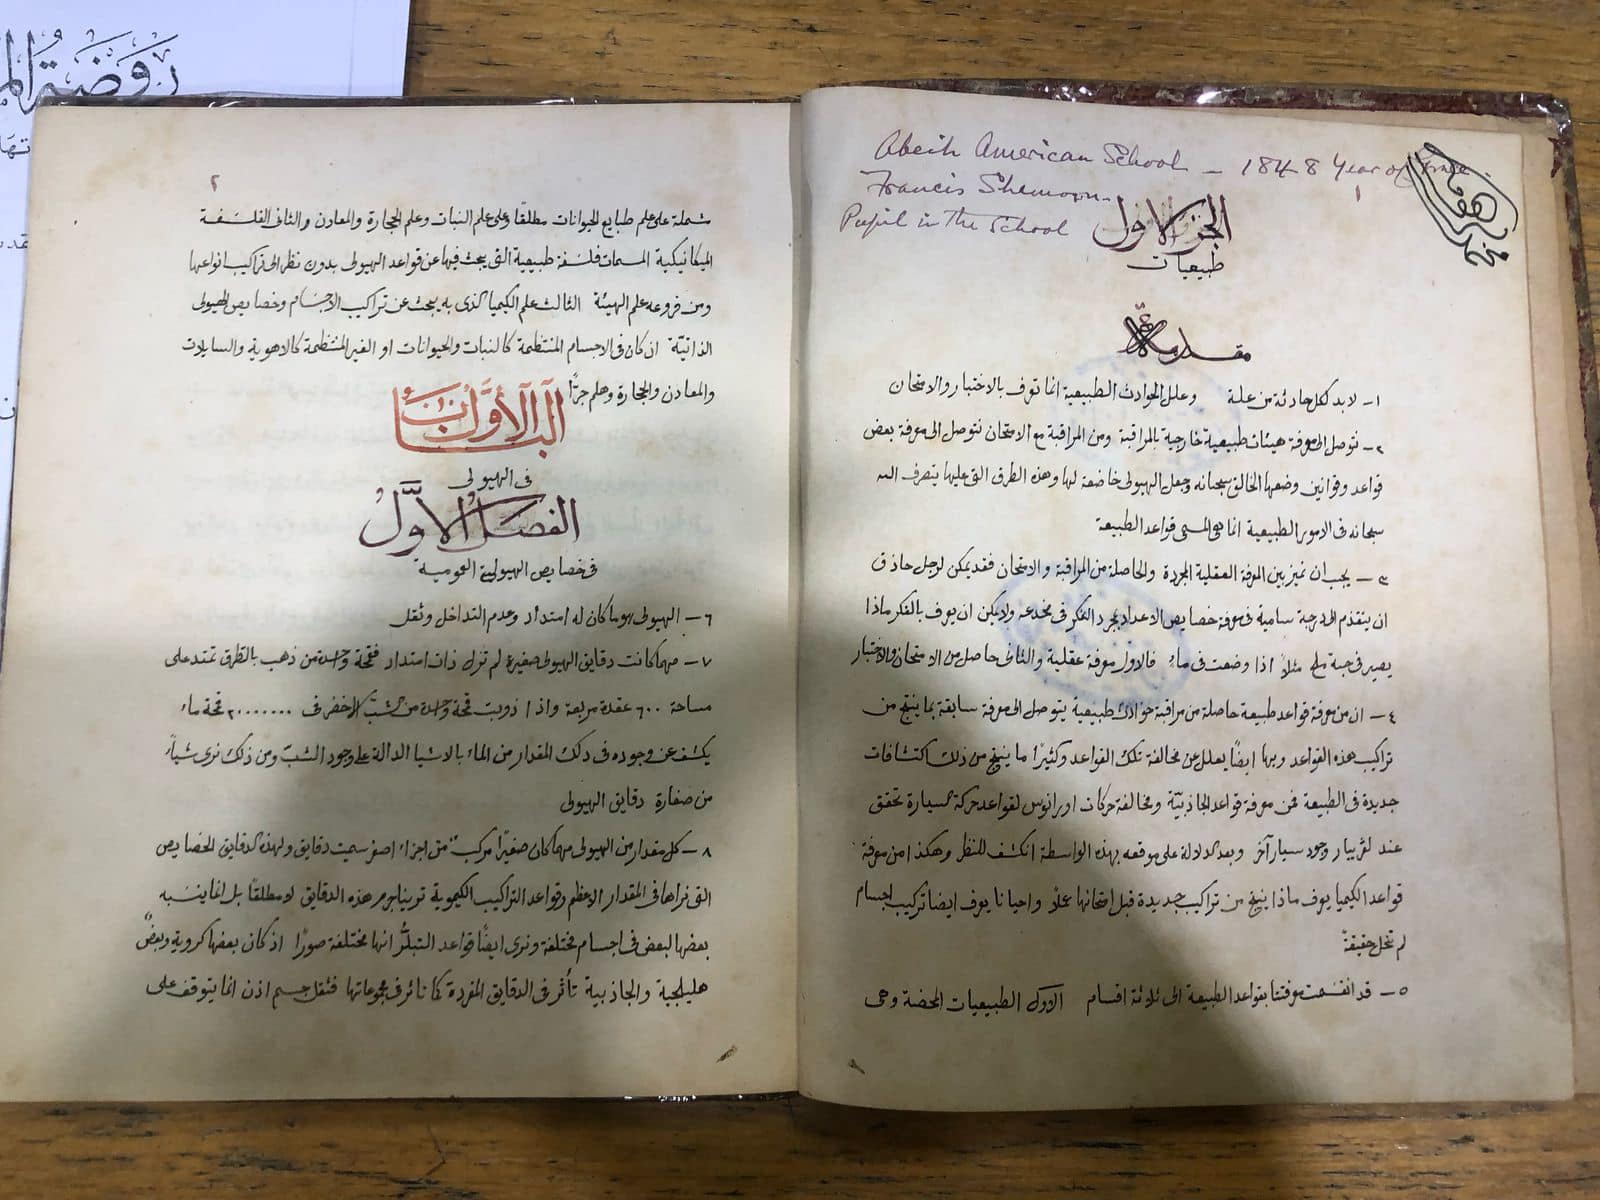 Abeih American School - 1848 Year of
Francis Shemoon
Pupil in the School
١
الجزؤ الاول
طبيعيات
مقدمة
١ـ لابد لكل حادثة من علة وعلل الحوادث الطبيعية انما تعرف بالاختبار والامتحان
٢ـ نتوصل الى معرفة هيئات طبيعية خارجية بالمراقبة ومن المراقبة مع الامتحان نتوصل الى معرفة بعض
قواعد وقوانين وضعها الخالق سبحانه وجعل الهيولى خاضعة لها وهذه الطرق التى عليها يتصرف الله
سبحانه فى الامور الطبيعية انما هى المسمى قواعد الطبيعة
٣ـ يجب ان نميز بين المعرفة العقلية المجردة والحاصلة من المراقبة والامتحان فقد يمكن لرجل حاذق
ان يتقدم الى درجة سامية فى معرفة خصايص الاعداد بمجرد الفكر فى مخدعه ولا يمكن ان يعرف بالفكر ماذا
يصير فى حبة ملح مثلاً اذا وضعت فى ماء فالاول معرفة عقلية والثانى حاصل من الامتحان والاختبار
٤ـ ان من معرفة قواعد طبيعة حاصلة من مراقبة حوادث طبيعية يتوصل الى معرفة سابقة بما ينتج من
تراكيب هذه القواعد وبها ايضًا يعلل عن مخالفة تلك القواعد وكثيرًا ما ينتج من ذلك اكتشافات
جديدة فى الطبيعة فمن معرفة قواعد الجاذبية ومخالفة حركات اورانوس لقواعد حركة السيارة تحقق
عند وجود سيار آخر وبعد الدلالة على موقعه بهذه الواسطة انكشف للنظر وهكذا من معرفة
قواعد الكيميا يعرف ماذا ينتج من تراكيب جديدة قبل امتحانها عملاً واحيانا يعرف ايضا تركيب اجسام
لم تحل حقيقةً
٥ـ قد انقسمت معرفتنا بقواعد الطبيعة الى ثلاثة اقسام الاول الطبيعيات المحضة وهى
٢
مشتملة على علم طبايع الحيوانات مطلقًا وعلى علم النبات وعلم الحجارة والمعادن والثانى الفلسفة
الميكانيكية المسمات فلسفة طبيعية التى يبحث فيها عن قواعد الهيولى بدون نظر الى تراكيب انواعها
ومن فروعه علم الهيئة الثالث علم الكيميا الذى به يبحث عن تراكيب الاجسام وخصايص الهيولى
الذاتية ان كان فى الاجسام المنتظمة كالنبات والحيوانات او الغير المنتظمة كالاهوية والسايلات
والمعادن والحجارة وهلم جرًّا
الباب الأول
فى الهيولى
الفصل الاول
فى خصايص الهيولية العمومية
٦ـ الهيولى هو ما كان له امتداد وعدم التداخل وثقل
٧ـ مهما كانت دقايق الهيولى صغيرة لم تزل ذات امتداد فقمحة واحدة من ذهب بالتطرق تمتد على
مساحة ٦٠٠ عقدة مربعة واذا ذوبت قمحة واحدة من الشب الاخضر فى ٢٠٠٠٠٠٠٠ قمحة ماء
يكشف عن وجوده فى ذلك المقدار من الماء بالاشيا الدالة على وجود الشب ومن ذلك نرى شياً
من صغارة دقايق الهيولى
٨ـ كل مقدار من الهيولى مهما كان صغيرًا مركب من اجزاء اصغر سميت دقايق ولهذه الدقايق الخصايص
التى نراها فى المقدار الاعظم وقواعد التراكيب الكيموية ترينا جرم هذه الدقايق لا مطلقًا بل انما ينسبه
بعضها لبعض فى اجسام مختلفة ونرى ايضًا قواعد التبلّر انها مختلفة صورًا اذ كان بعضها كروية وبعضٌ
هليلجية والجاذبية تأثر فى الدقايق المفردة كما تأثر فى مجموعاتها فثقل جسم اذن انما يتوقف على